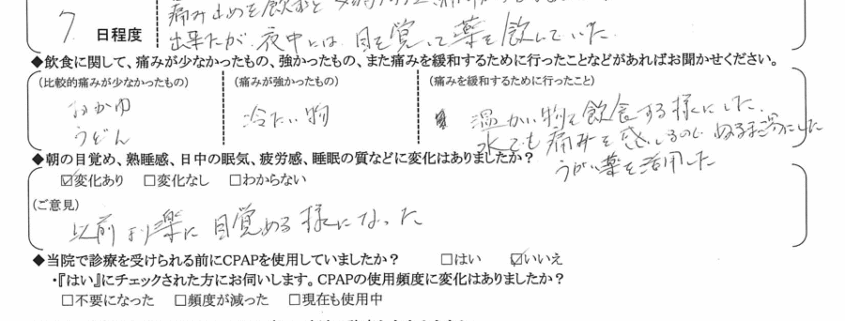 痛み止めを飲むと
7 日程度
出来たが、夜中には、目を覚して薬を飲んでいた。
◆飲食に関して、痛みが少なかったもの、強かったもの、また痛みを緩和するために行ったことなどがあればお聞かせください。
(比較的痛みが少なかったもの) (痛みが強かったもの) (痛みを緩和するために行ったこと)
おかゆ
うどん
冷たい物
温かい物で飲食する様にした、
水でも痛みを感じるので ぬるま湯にした
うがい薬を活用した
◆朝の目覚め、熟睡感、日中の眠気、疲労感、睡眠の質などに変化はありましたか?
☑変化あり □変化なし □わからない
(ご意見)
以前より楽に目覚める様になった
◆当院で診療を受けられる前にCPAPを使用していましたか? □はい ☑いいえ
・『はい』にチェックされた方にお伺いします。CPAPの使用頻度に変化はありましたか?
□不要になった □頻度が減った □現在も使用中